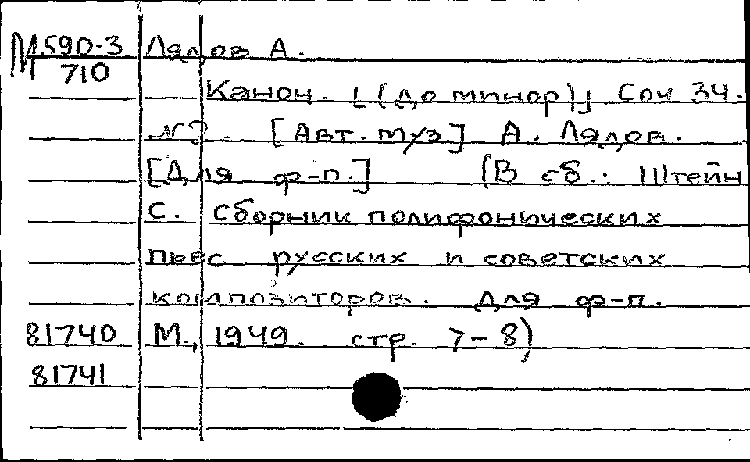 М590-3 Лядов А.
М 710
Канон. [(до минор)] Соч 34.
№2. [Авт. муз] А. Лядов.
[Для ф-п.] (В сб.: Штейн
С. Сборник полифонических
пьес русских и советских
композиторов. Для ф-п.
81740 М., 1949. стр. 7-8)
81741